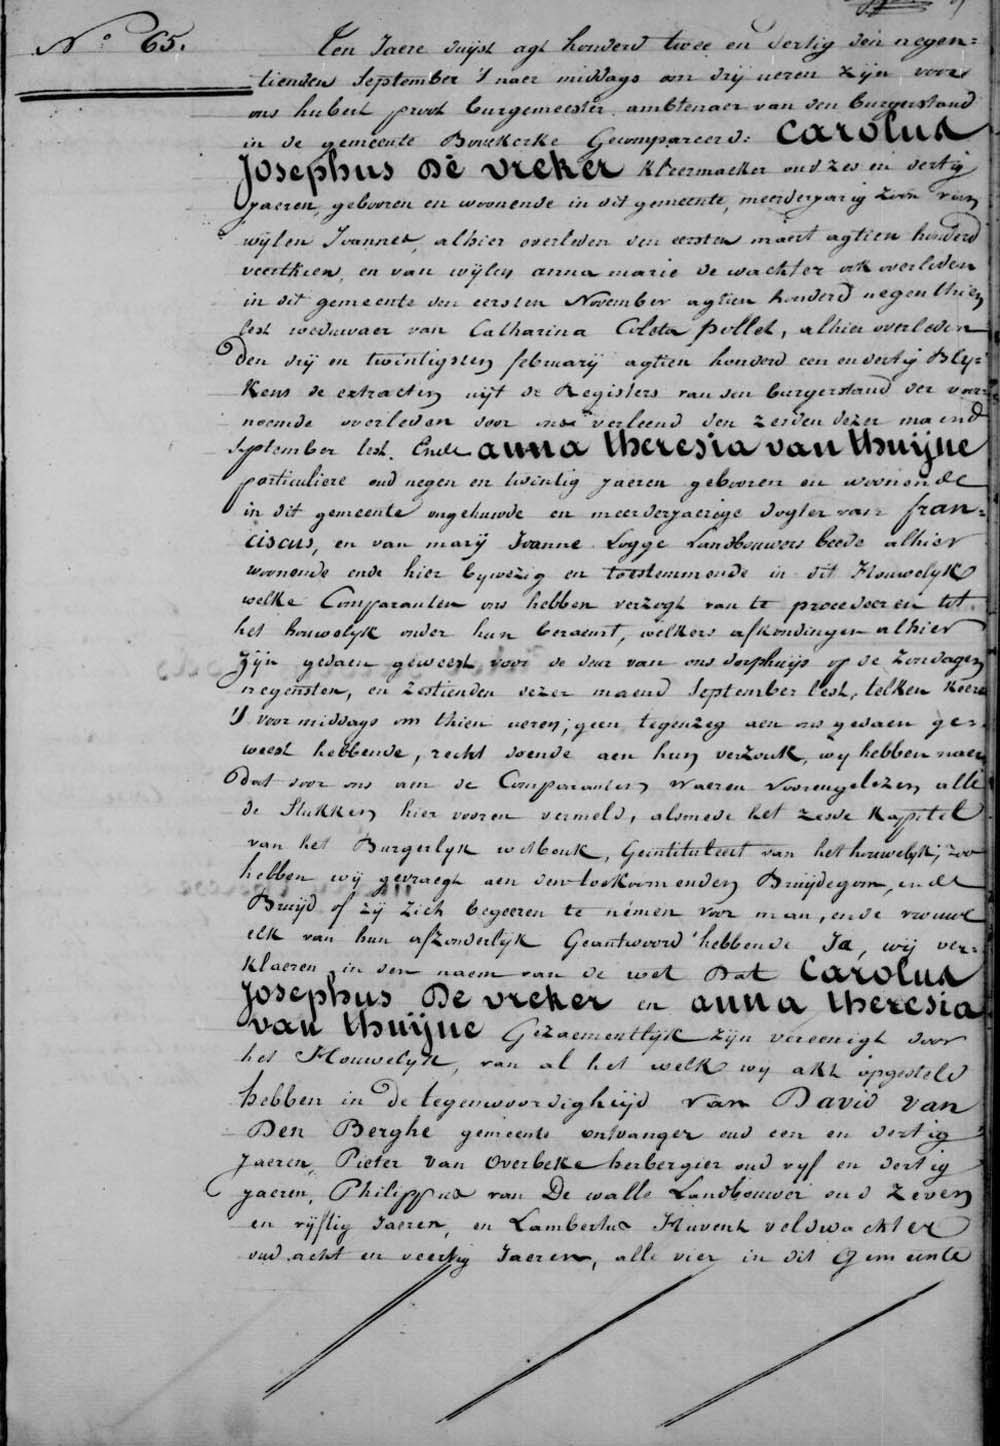 N.º 65.
Ten Jaere duijst agt honderd twee en dertig den negen=
tienden September 's naer middags om drij ueren zijn voor
ons hubert proot burgemeester ambtenaer van den burgerstand
in de gemeente Bovekerke Gecompareerd: Carolus
Josephus De vreker kleermaeker oud zes en dertig
jaeren, gebooren en woonende in dit gemeente, meerderjarig zoon van
wijlen Joannes, alhier overleden den eersten maert agtien honderd
veerthien, en van wijlen anna marie de wachter ook overleden
in dit gemeente den eersten November agtien honderd negenthien
lest weduwaer van Catharina Coleta pollet, alhier overleden
den drij en twintigsten february agtien honderd een en dertig Bly-
kens de extracten uijt de Registers van den burgerstand der voor-
noemde overleden door ons verleend den zesden dezer maend
September lest. Ende anna theresia van thuijne
particuliere oud negen en twintig jaeren gebooren en woonende
in dit gemeente ongehuwde en meerderjaerige dogter van fran-
ciscus, en van marij Joanne Logge Landbouwers beede alhier
woonende ende hier bywezig en toestemmende in dit Houwelyk
welke Comparanten ons hebben verzogt van te procedeeren tot
het houwelyk onder hun beraemt, welkers afkondingen alhier
zijn gedaen geweest voor de deur van ons dorphuijs op de zondagen
negensten, en zestienden dezer maend September lest, telken keere
's voormiddags om thien ueren; geen tegenzeg aen ons gedaen ge-
weest hebbende, recht doende aen hun verzouk, wy hebben naer
dat door ons aen de Comparanten waeren voorengelezen alle
de Stukken hier vooren vermeld, alsmede het zesde kapitel
van het Burgerlyk wetbouk, Geintituleert van het houwelyk; zoo
hebben wij gevraegh aen den toekoomenden Bruijdegom, en de
Bruijd of zij zich begeeren te nemen voor man, ende vrouwe
elk van hun afzonderlijk Geantwoord hebbende Ja, wij ver-
klaeren in den naem van de wet Dat Carolus
Josephus De vreker en anna theresia
van thuijne Gezaementlijk zijn vereenigt door
het Houwelyk, van al het welk wy akt opgesteld
hebben in de tegenwoordigheijd van David van
Den Berghe gemeente ontvanger oud een en dertig
jaeren, Pieter van overbeke herbergier oud vyf en dertig
jaeren, Philippus van De walle Landbouwer oud zeven
en vijftig Jaeren, en Lambertus veldwachter
oud acht en veertig Jaeren, alle vier in dit Gemeente